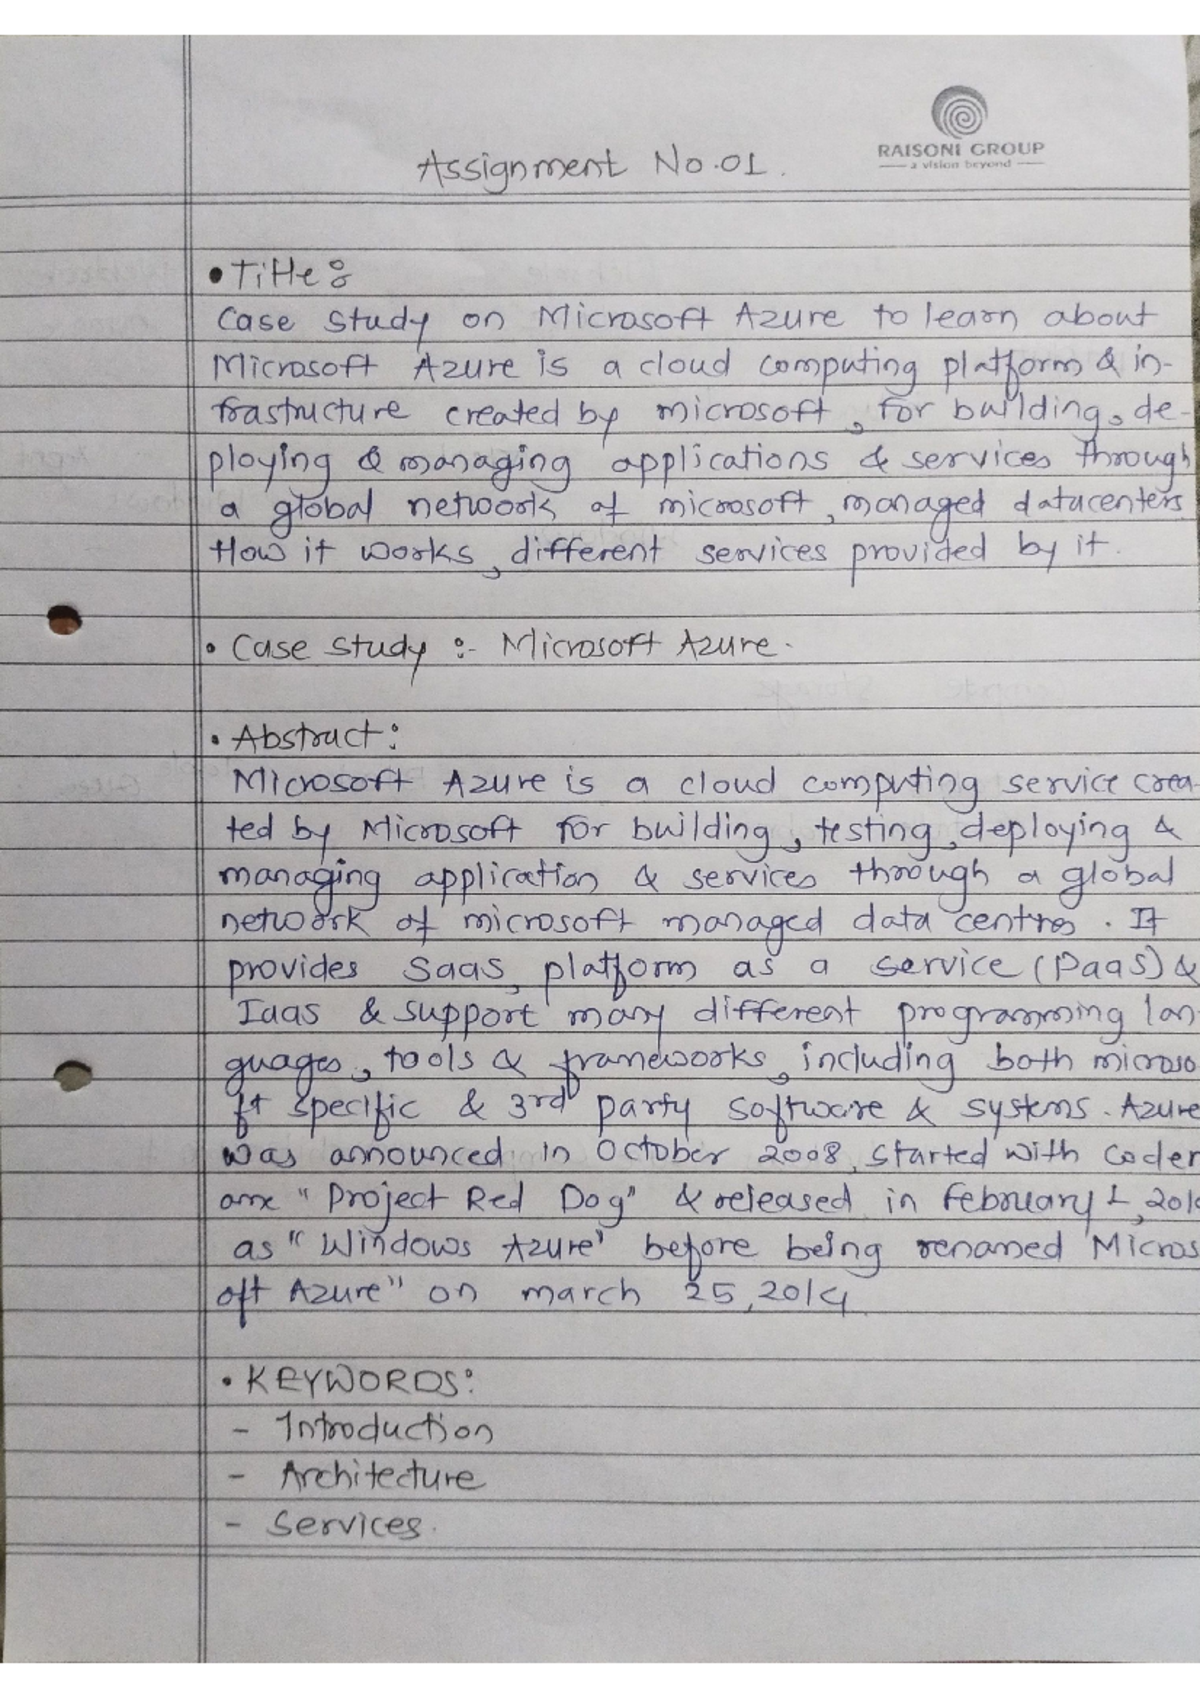 RAISONI GROUP
a vision beyond
Assignment No.01.
• Title:
Case study on Microsoft Azure to learn about
Microsoft Azure is a cloud computing platform & in-
frastructure created by microsoft, for building, de-
ploying & managing applications & services through
a global network of microsoft, managed datacenters
How it works, different services provided by it.
• Case study :- Microsoft Azure.
• Abstract:
Microsoft Azure is a cloud computing service crea-
ted by Microsoft for building, testing, deploying &
managing application & services through a global
network of microsoft managed data centres. It
provides Saas, platform as a service (PaaS) &
Iaas & support many different programming lan-
guages, tools & frameworks, including both microso
ft specific & 3rd party software & systems. Azure
was announced in October 2008, started with coden
ame "Project Red Dog" & released in february 1, 2010
as "Windows Azure" before being renamed "Micros
oft Azure" on march 25, 2014.
• KEYWORDS:
- Introduction
- Architecture
- Services.